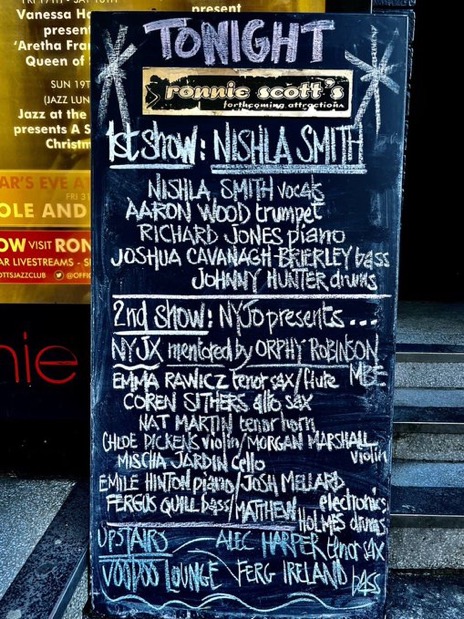 FRI 17TH - SAT 
Vanessa Ha
present
'Aretha Fran
Queen of S
present
SUN 19T
(JAZZ LUN
Jazz at the
presents A S
Christm
AR'S EVE AT
FRI 31
OLE AND
OW VISIT RON
AR LIVESTREAMS - S
OTTSJAZZCLUB @OFFIC
nie
TONIGHT
ronnie scott's
forthcoming attractions
1st show: NISHLA SMITH
NISHLA SMITH vocals
AARON WOOD trumpet
RICHARD JONES piano
JOSHUA CAVANAGH-BRIERLEY bass
JOHNNY HUNTER drums
2nd show: NYJO presents...
NYJX mentored by ORPHY ROBINSON
MBE
EMMA RAWICZ tenor sax/flute
COREN SITHERS alto sax
NAT MARTIN tenor horn
CHLOE DICKENS violin/MORGAN MARSHALL
violin
MISCHA JARDIN cello
EMILE HINTON piano/JOSH MELLARD
electronics
FERGUS QUILL bass/MATTHEW
HOLMES drums
UPSTAIRS ALEC HARPER tenor sax
VOODOO LOUNGE FERG IRELAND bass